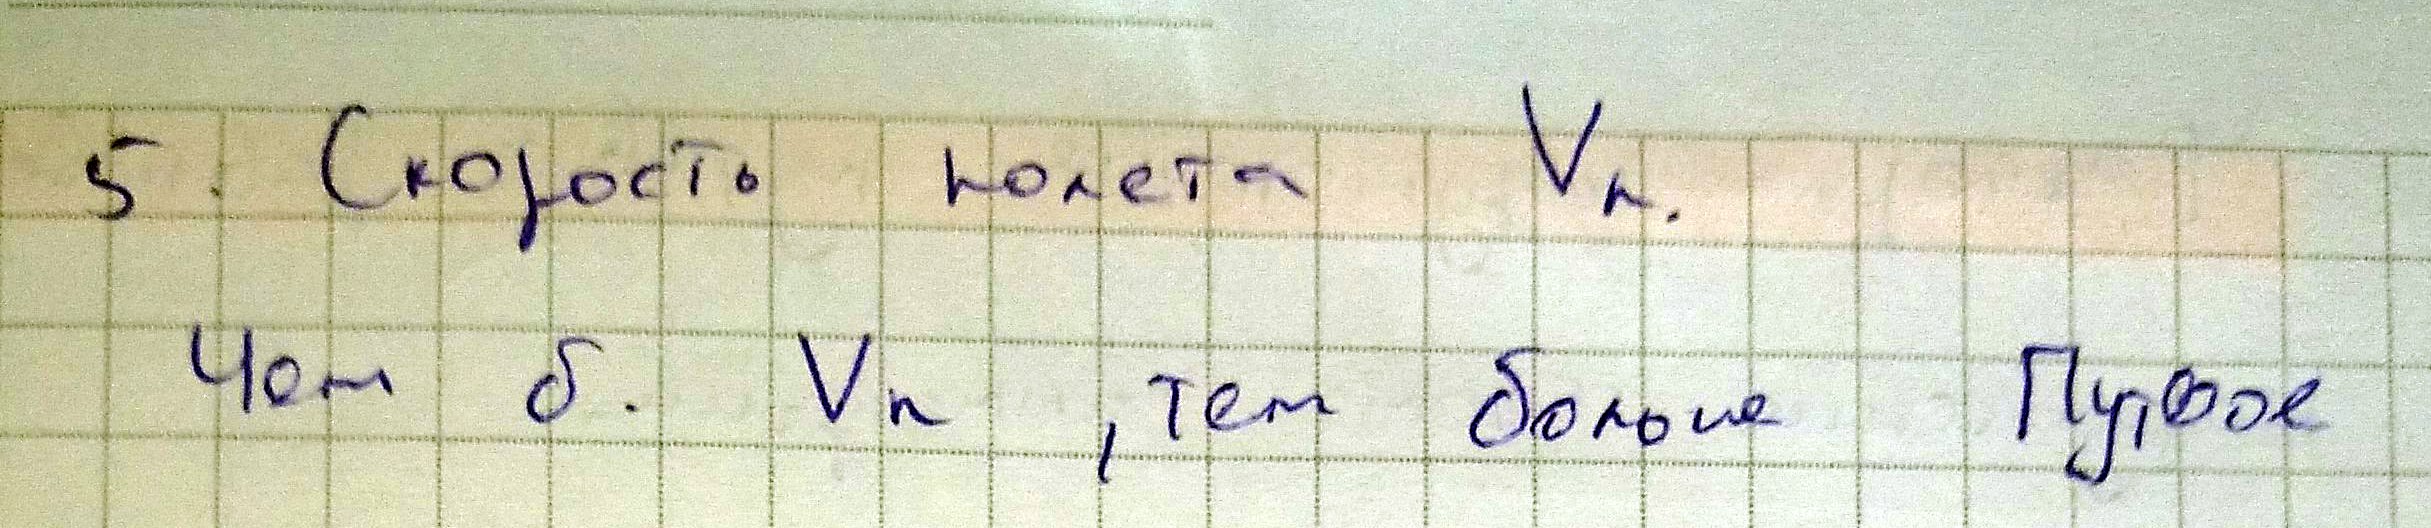 5. Скорость полета Vп.
Чем б. Vп, тем больше